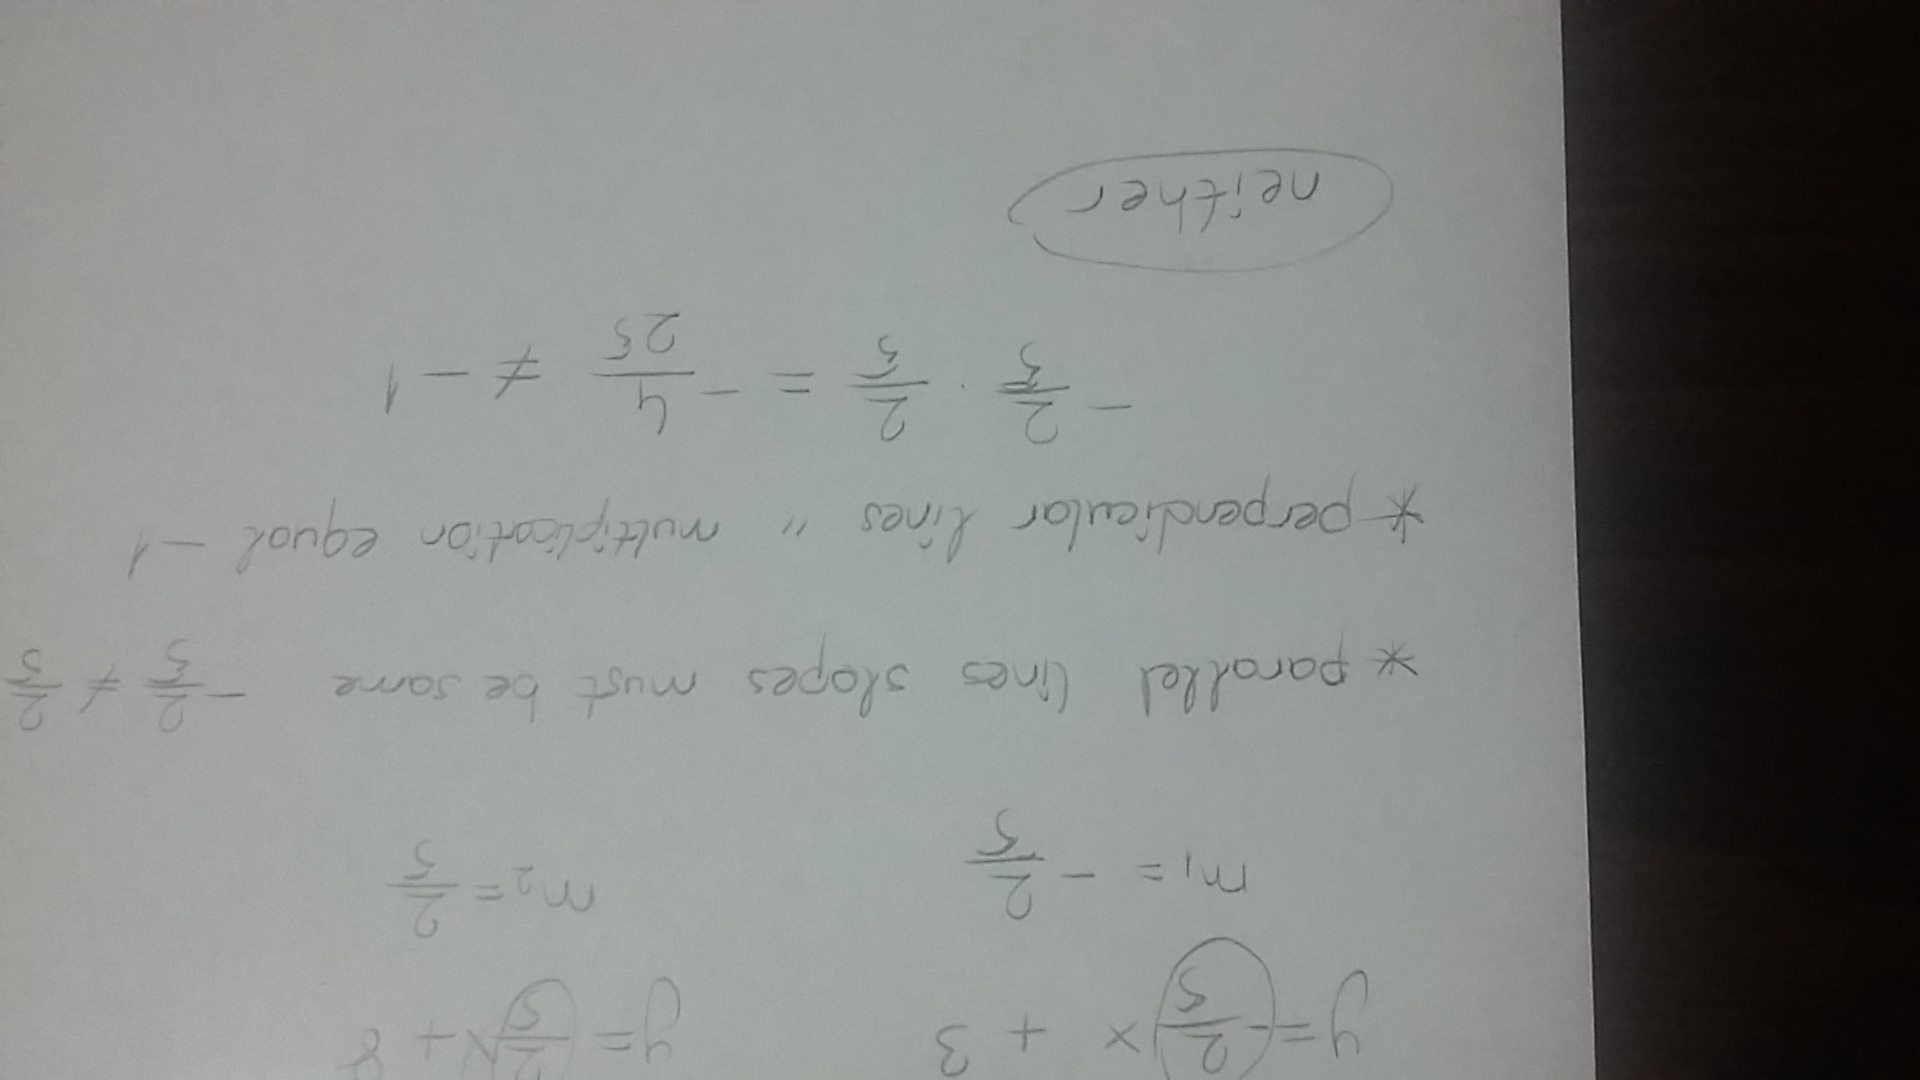 y = -2/5 x + 3 y = 2/5 x + 8
m₁ = -2/5 m₂ = 2/5
* parallel lines slopes must be same -2/5 ≠ 2/5
* perpendicular lines " multiplication equal -1
-2/5 · 2/5 = -4/25 ≠ -1
neither